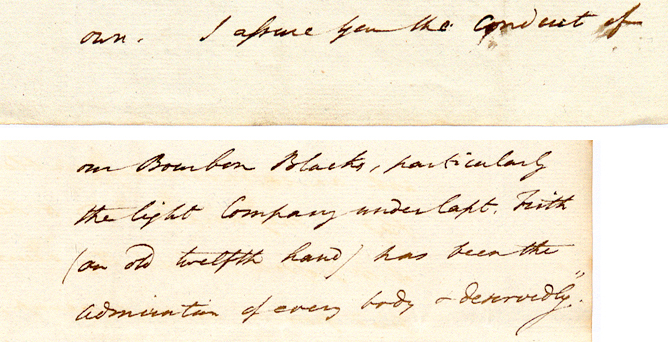 own. I assure you the conduct of
our Bourbon Blacks, particularly
the light Company under Capt. Frith
(an old twelfth hand) has been the
admiration of every body & deservedly".